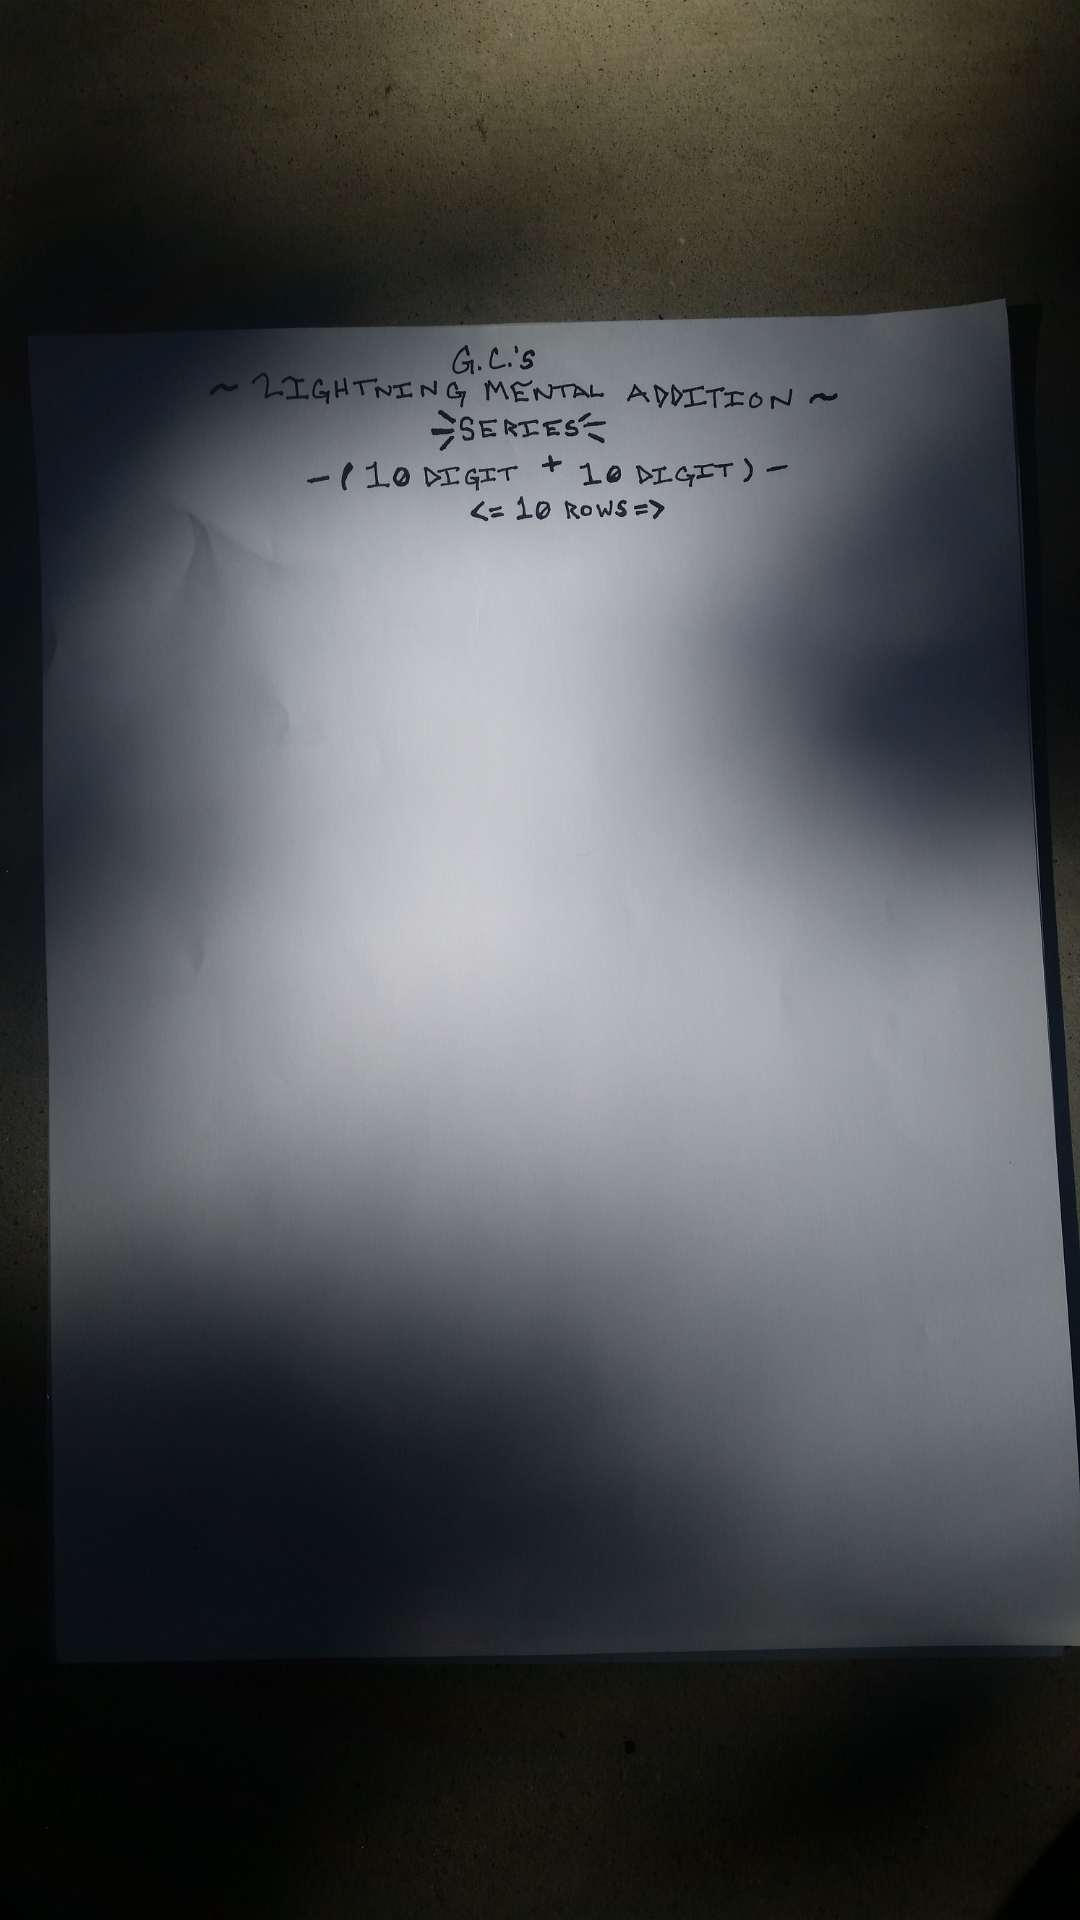 G.C.'s
~ LIGHTNING MENTAL ADDITION ~
SERIES
-(10 DIGIT + 10 DIGIT)-
<= 10 ROWS =>